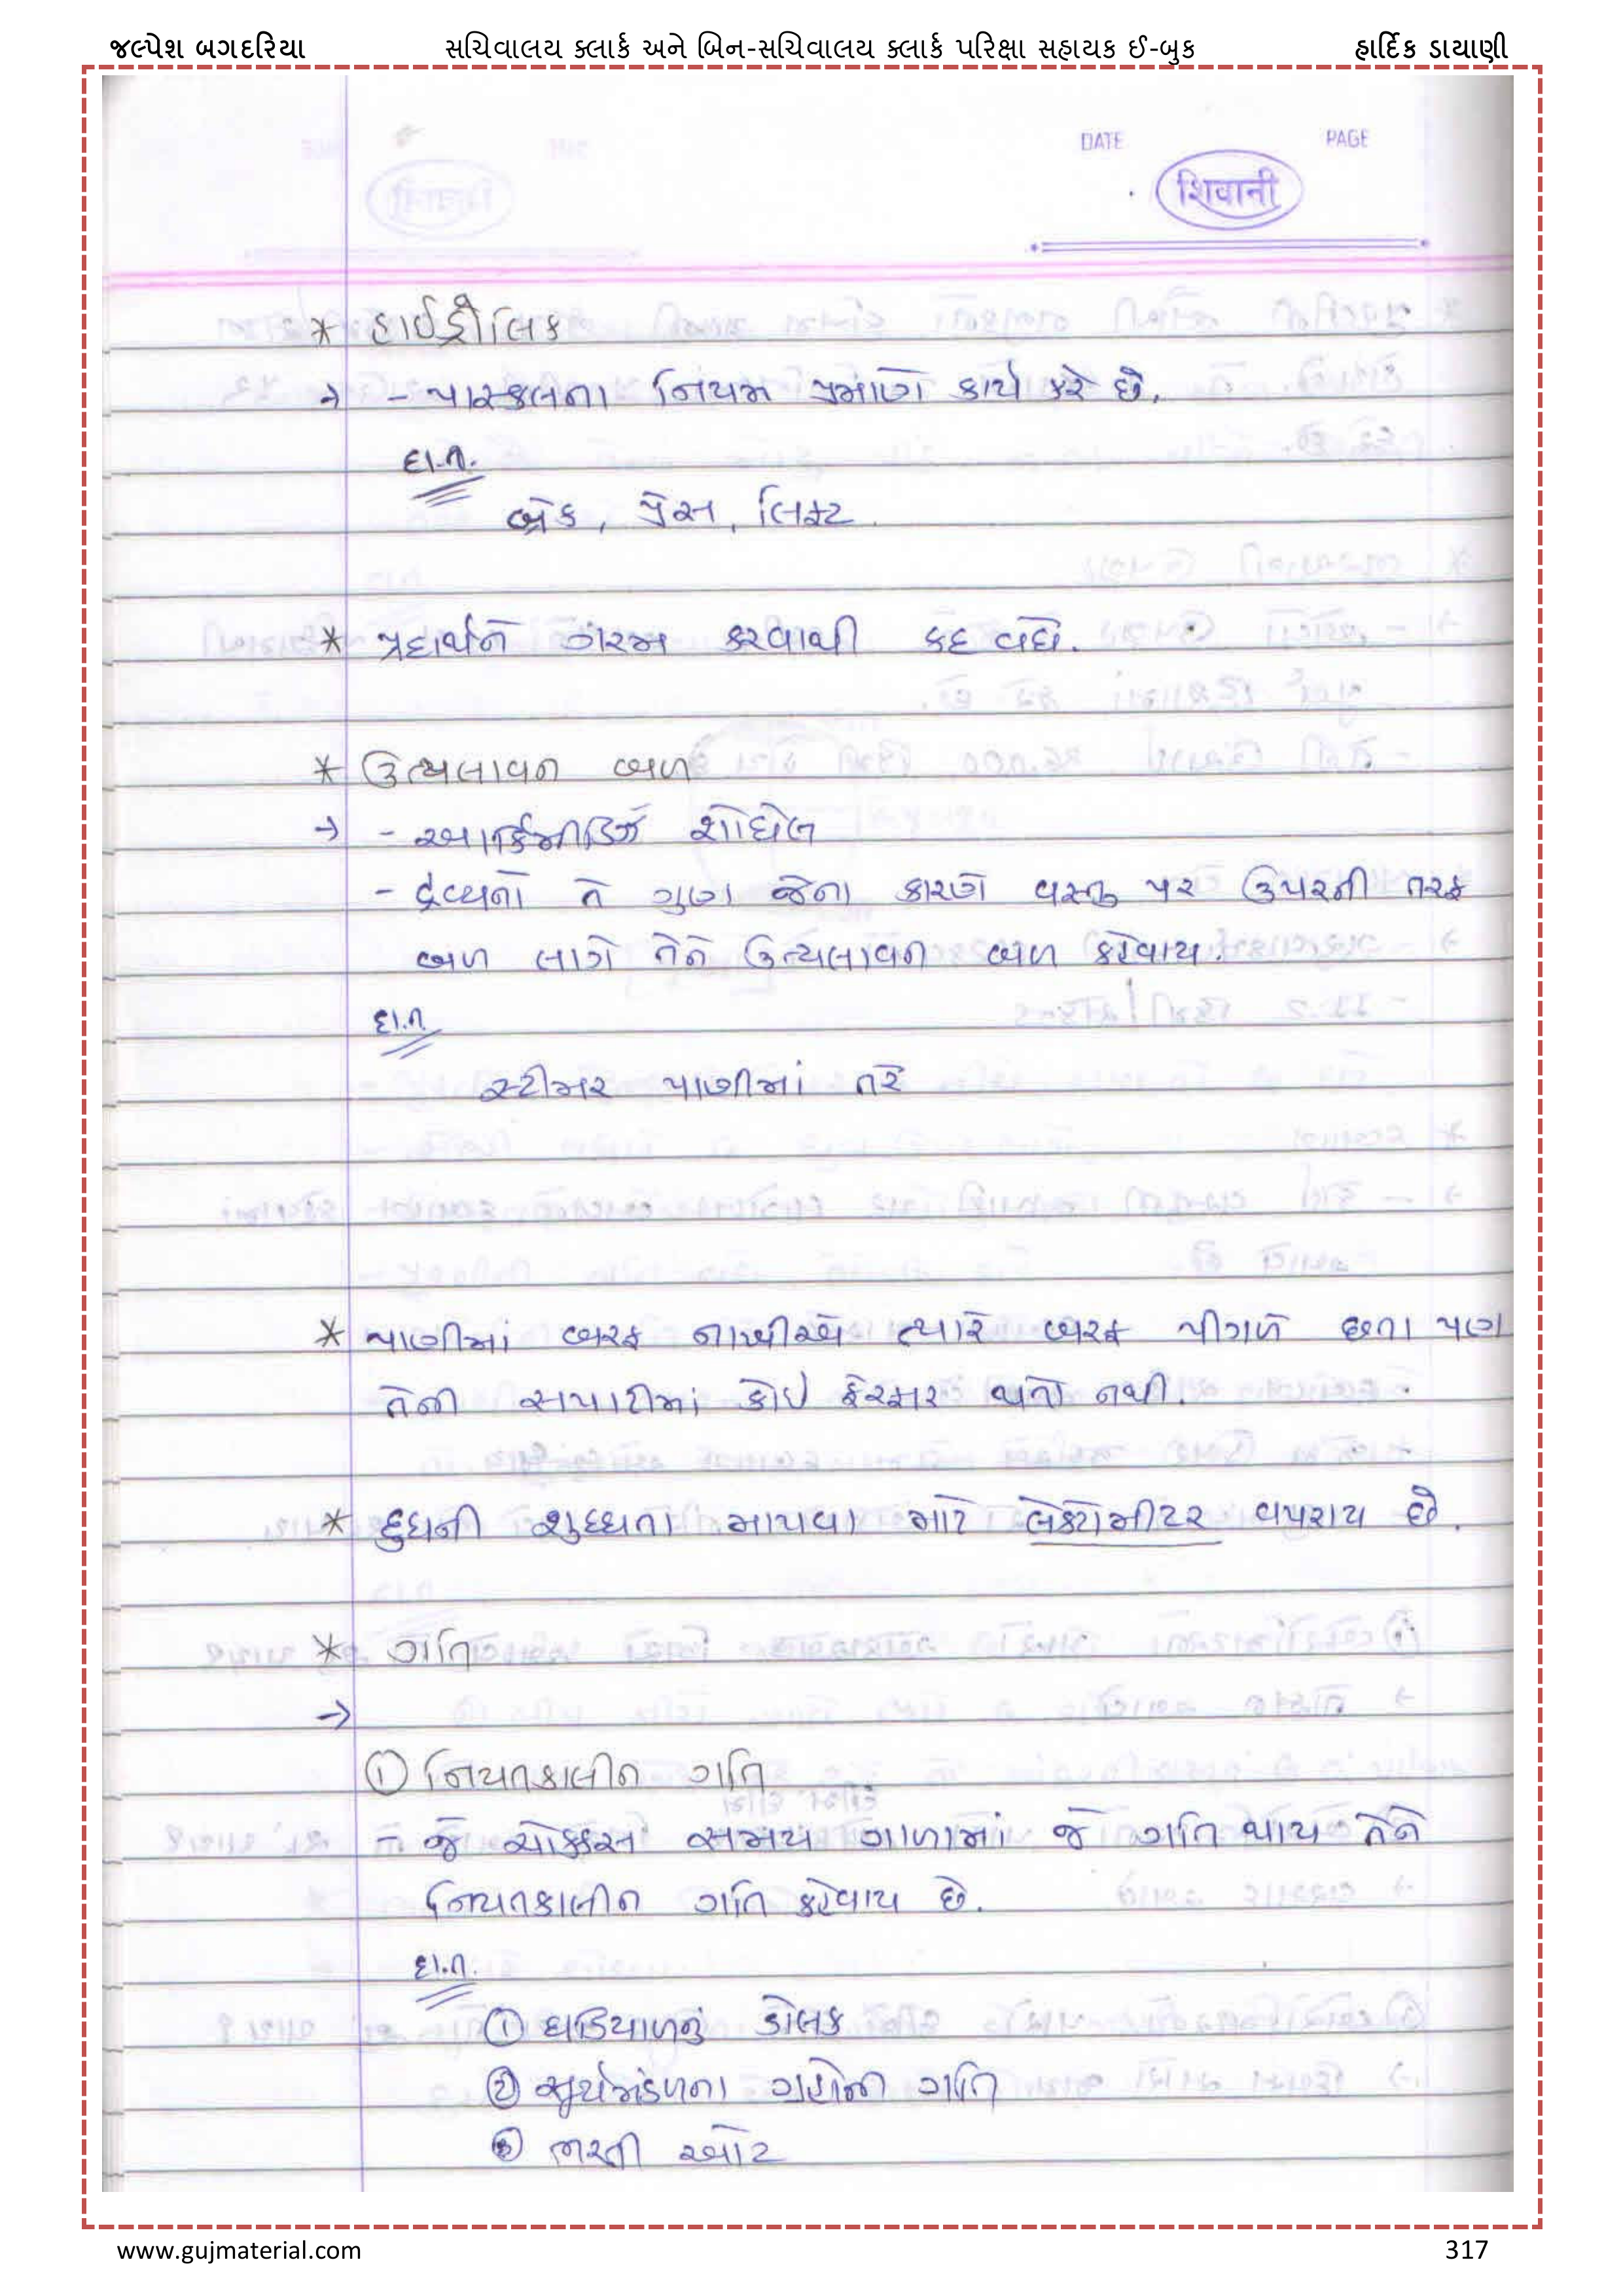 જલ્પેશ બગદરિયા સચિવાલય ક્લાર્ક અને બિન-સચિવાલય ક્લાર્ક પરિક્ષા સહાયક ઈ-બુક હાર્દિક ડાયાણી
DATE PAGE
शिवानी
* હાઈડ્રૌલિક
→ - પાસ્કલના નિયમ પ્રમાણે કાર્ય કરે છે.
દા.ત.
બ્રેક, પ્રેસ, લિફ્ટ
* પ્રદાર્થને ગરમ કરવાથી કદ વધે.
* ઉત્પ્લાવન બળ
→ - આર્કિમીડિઝે શોધેલ
- દ્રવ્યનો તે ગુણ જેના કારણે વસ્તુ પર ઉપરની તરફ
બળ લાગે તેને ઉત્પ્લાવન બળ કહેવાય.
દા.ત.
સ્ટીમર પાણીમાં તરે
* પાણીમાં બરફ નાખીએ ત્યારે બરફ પીગળે છતા પણ
તેની સપાટીમાં કોઈ ફેરફાર થતો નથી.
* દુધની શુધ્ધતા માપવા માટે લેક્ટોમીટર વપરાય છે.
* ગતિ
→
① નિયતકાલીન ગતિ
- જે ચોક્કસ સમય ગાળામાં જે ગતિ થાય તેને
નિયતકાલીન ગતિ કહેવાય છે.
દા.ત.
① ઘડિયાળનું લોલક
② સૂર્યમંડળના ગ્રહોની ગતિ
③ ભરતી ઓટ
www.gujmaterial.com 317